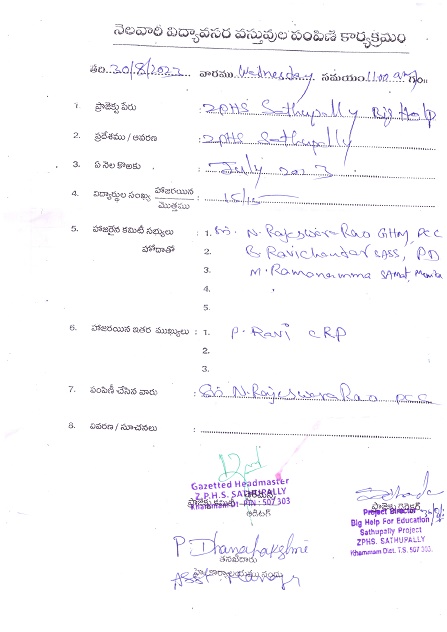 నెలవారి విద్యావసర వస్తువుల పంపిణి కార్యక్రమం
తది 30/8/2023 వారము Wednesday సమయం 11:00 am గం॥
1. ప్రాజెక్టు పేరు : ZPHS Sathupally Big Help
2. ప్రదేశము / ఆవరణ : ZPHS Sathupally
3. ఏ నెల కొఱకు : July 2023
4. విద్యార్థుల సంఖ్య హాజరయిన / మొత్తము : 15/15
5. హాజరైన కమిటీ సభ్యులు హోదాతో : 1. Sri. N. Rajeswara Rao GHM, PCC
2. B. Ravichandar SASS, PD
3. M. Ramanamma SAMat,
4.
5.
6. హాజరయిన ఇతర ముఖ్యులు : 1. P. Ravi CRP
2.
3.
7. పంపిణీ చేసిన వారు : Sri N. Rajeswara Rao PCC
8. వివరణ / సూచనలు :
Gazetted Headmaster
Z.P.H.S. SATHUPALLY
Khammam Dt - PIN : 507 303
ఆడిటర్
ప్రాజెక్టు డైరెక్టర్
Project Director
Big Help For Education
Sathupally Project
ZPHS. SATHUPALLY
Khammam Dist. T.S. 507 303.
P. Dhanalakshmi